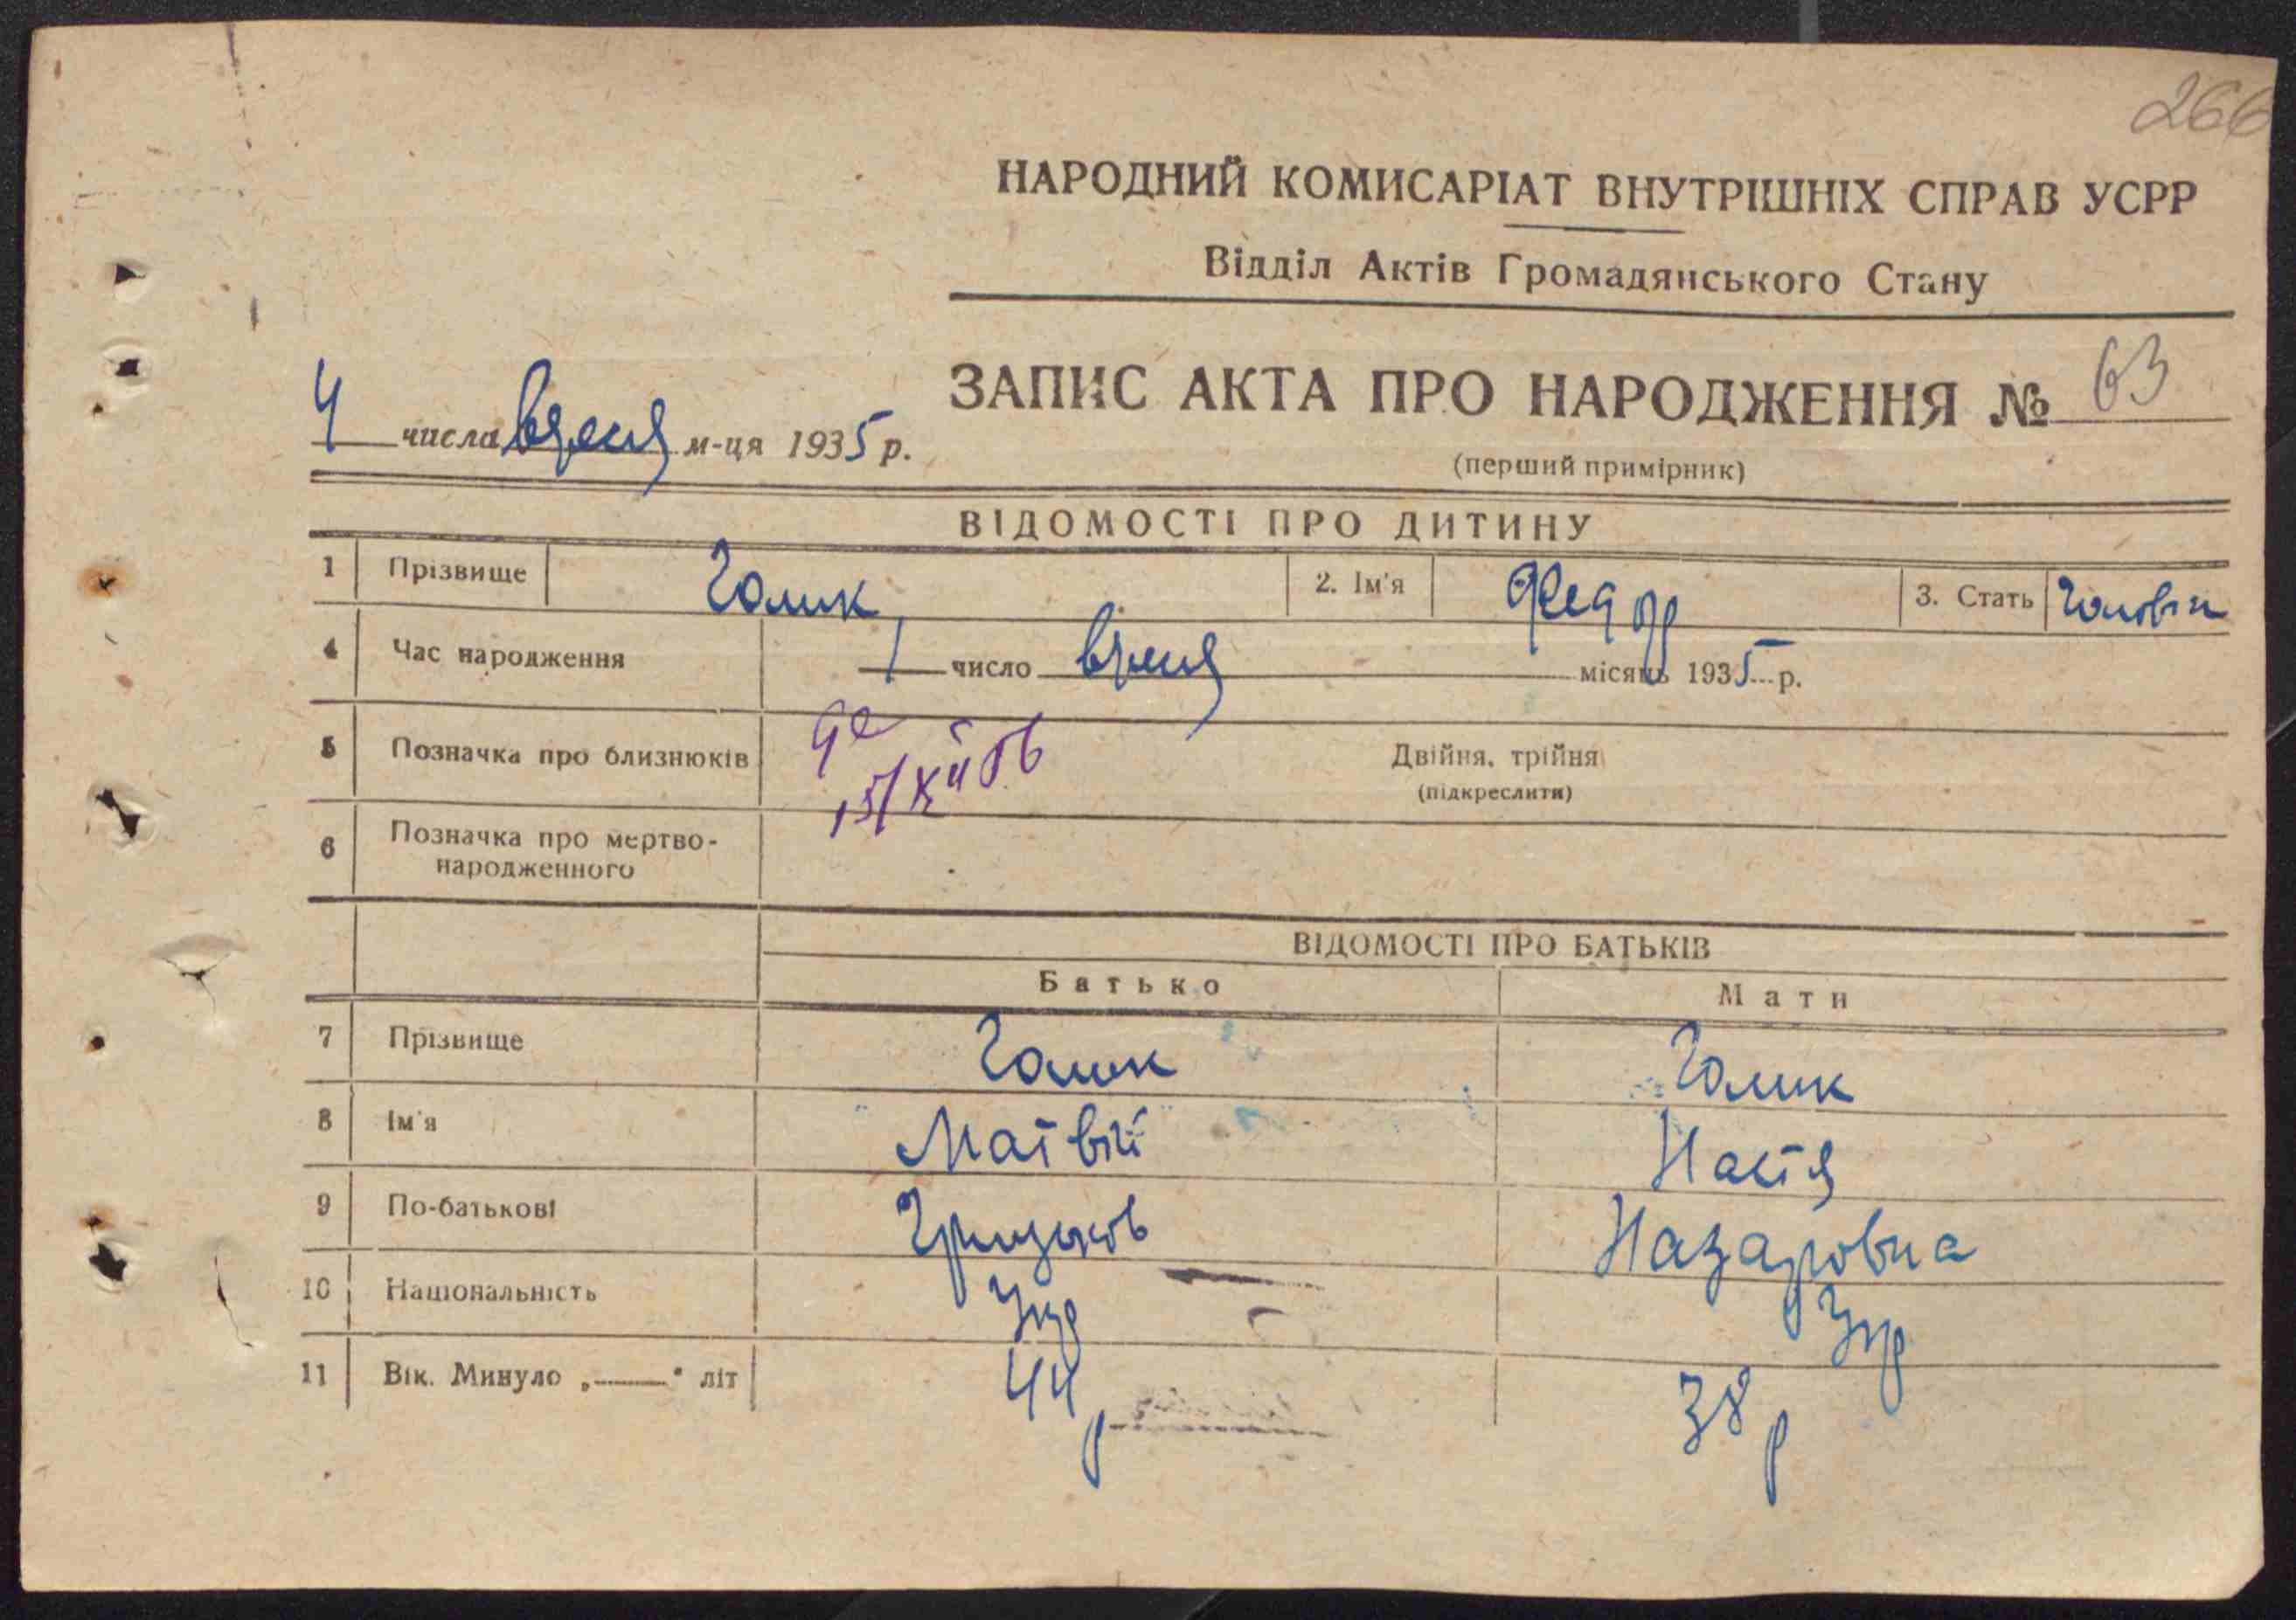 266
НАРОДНИЙ КОМИСАРІАТ ВНУТРІШНІХ СПРАВ УСРР
Відділ Актів Громадянського Стану
ЗАПИС АКТА ПРО НАРОДЖЕННЯ № 63
4 числа вресня м-ця 1935 р.
(перший примірник)
ВІДОМОСТІ ПРО ДИТИНУ
1 Прізвище Голик 2. Ім'я Федор 3. Стать
4 Час народження 1 число вресня місяць 1935 р.
5 Позначка про близнюків Двійня, трійня
(підкреслити)
6 Позначка про мертво-
народженного
ВІДОМОСТІ ПРО БАТЬКІВ
Батько Мати
7 Прізвище Голик Голик
8 Ім'я Матвій Настя
9 По-батькові Назаровна
10 Національність Укр Укр
11 Вік. Минуло „——" літ 44 р 38 р